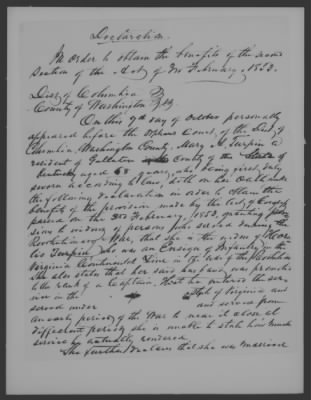 Declaration.
In order to obtain the benefits of the second
section of the Act of 3rd February, 1853.
Dist. of Columbia
County of Washington
On this 9th day of October personally
appeared before the Orphans Court, of the Dist. of
Columbia, Washington County, Mary A. Turpin a
resident of Gallatin County of the State of
Kentucky aged 68 years, who being first duly
sworn according to law, doth on her oath make
the following declaration in order to obtain the
benefits of the provision made by the Act of Congress
passed on the 3rd February, 1853, granting pen
sions to widows of persons who served during the
Revolutionary War, that she is the widow of Hora
tio Turpin who was an Ensign of Infantry in the
Virginia Continental Line in the war of the Revolution
She also states that her said husband was promoted
to the rank of a Captain. That he entered the ser
vice in the State of Virginia and
served under and served from
an early period of the War to near its close at
different periods, she is unable to state how much
service he actually rendered.
She further declares that she was married